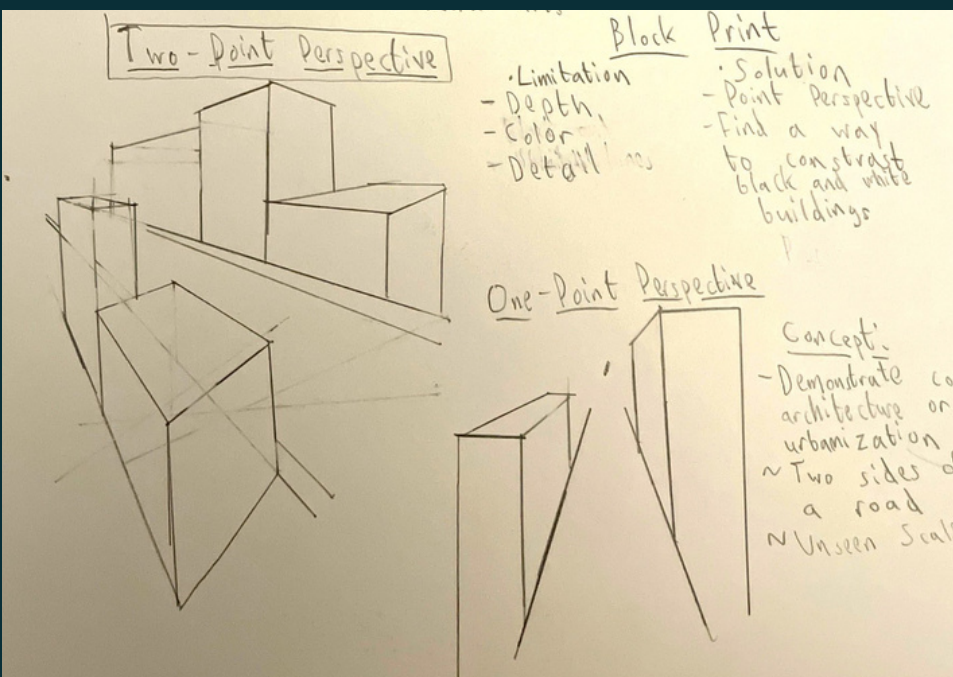 Two-Point Perspective
Block Print
• Limitation
- Depth
- Color
- Detail
• Solution
- Point Perspective
- Find a way
to constrast
black and white
buildings
One-Point Perspective
Concept:
- Demonstrate
architecture or
urbanization
~ Two sides
a road
~ Unseen